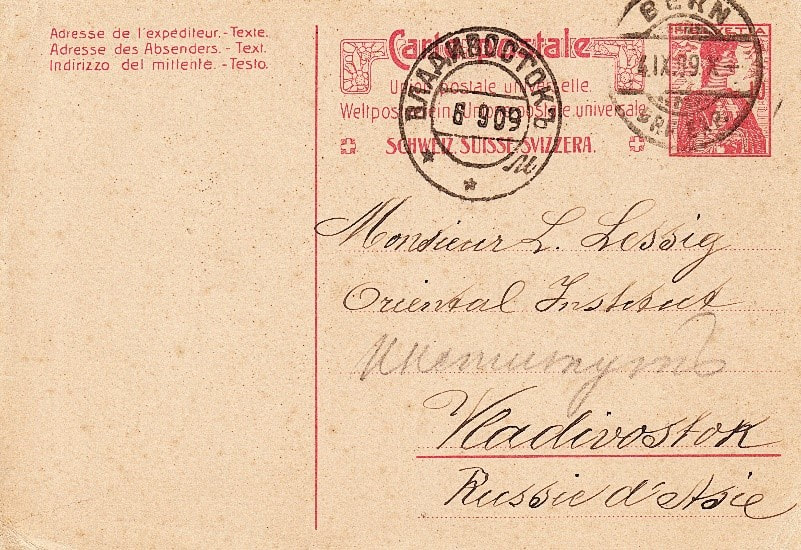 Adresse de l'expéditeur.-Texte.
Adresse des Absenders. - Text.
Indirizzo del mittente. - Testo.
Carte postale
Union postale universelle.
Weltpostverein. Unione postale universale.
SCHWEIZ. SUISSE. SVIZZERA.
ВЛАДИВОСТОКЪ
6 9 09
BERN
4.IX.09.X
HELVETIA
Monsieur L. Lessig
Oriental Institut
Vladivostok
Russie d'Asie